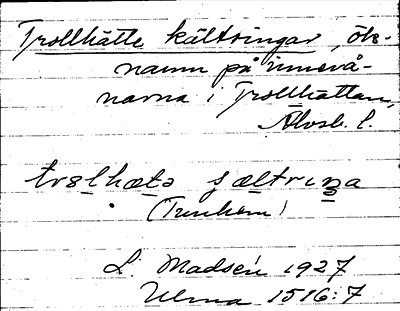 Trollhätte kältringar, ök-
namn på innevå-
narna i Trollhättan,
Älvsb. l.
trɵlhætə sæltriŋa
(Trunhem)
L. Madsén 1927
Ulma 1516:7